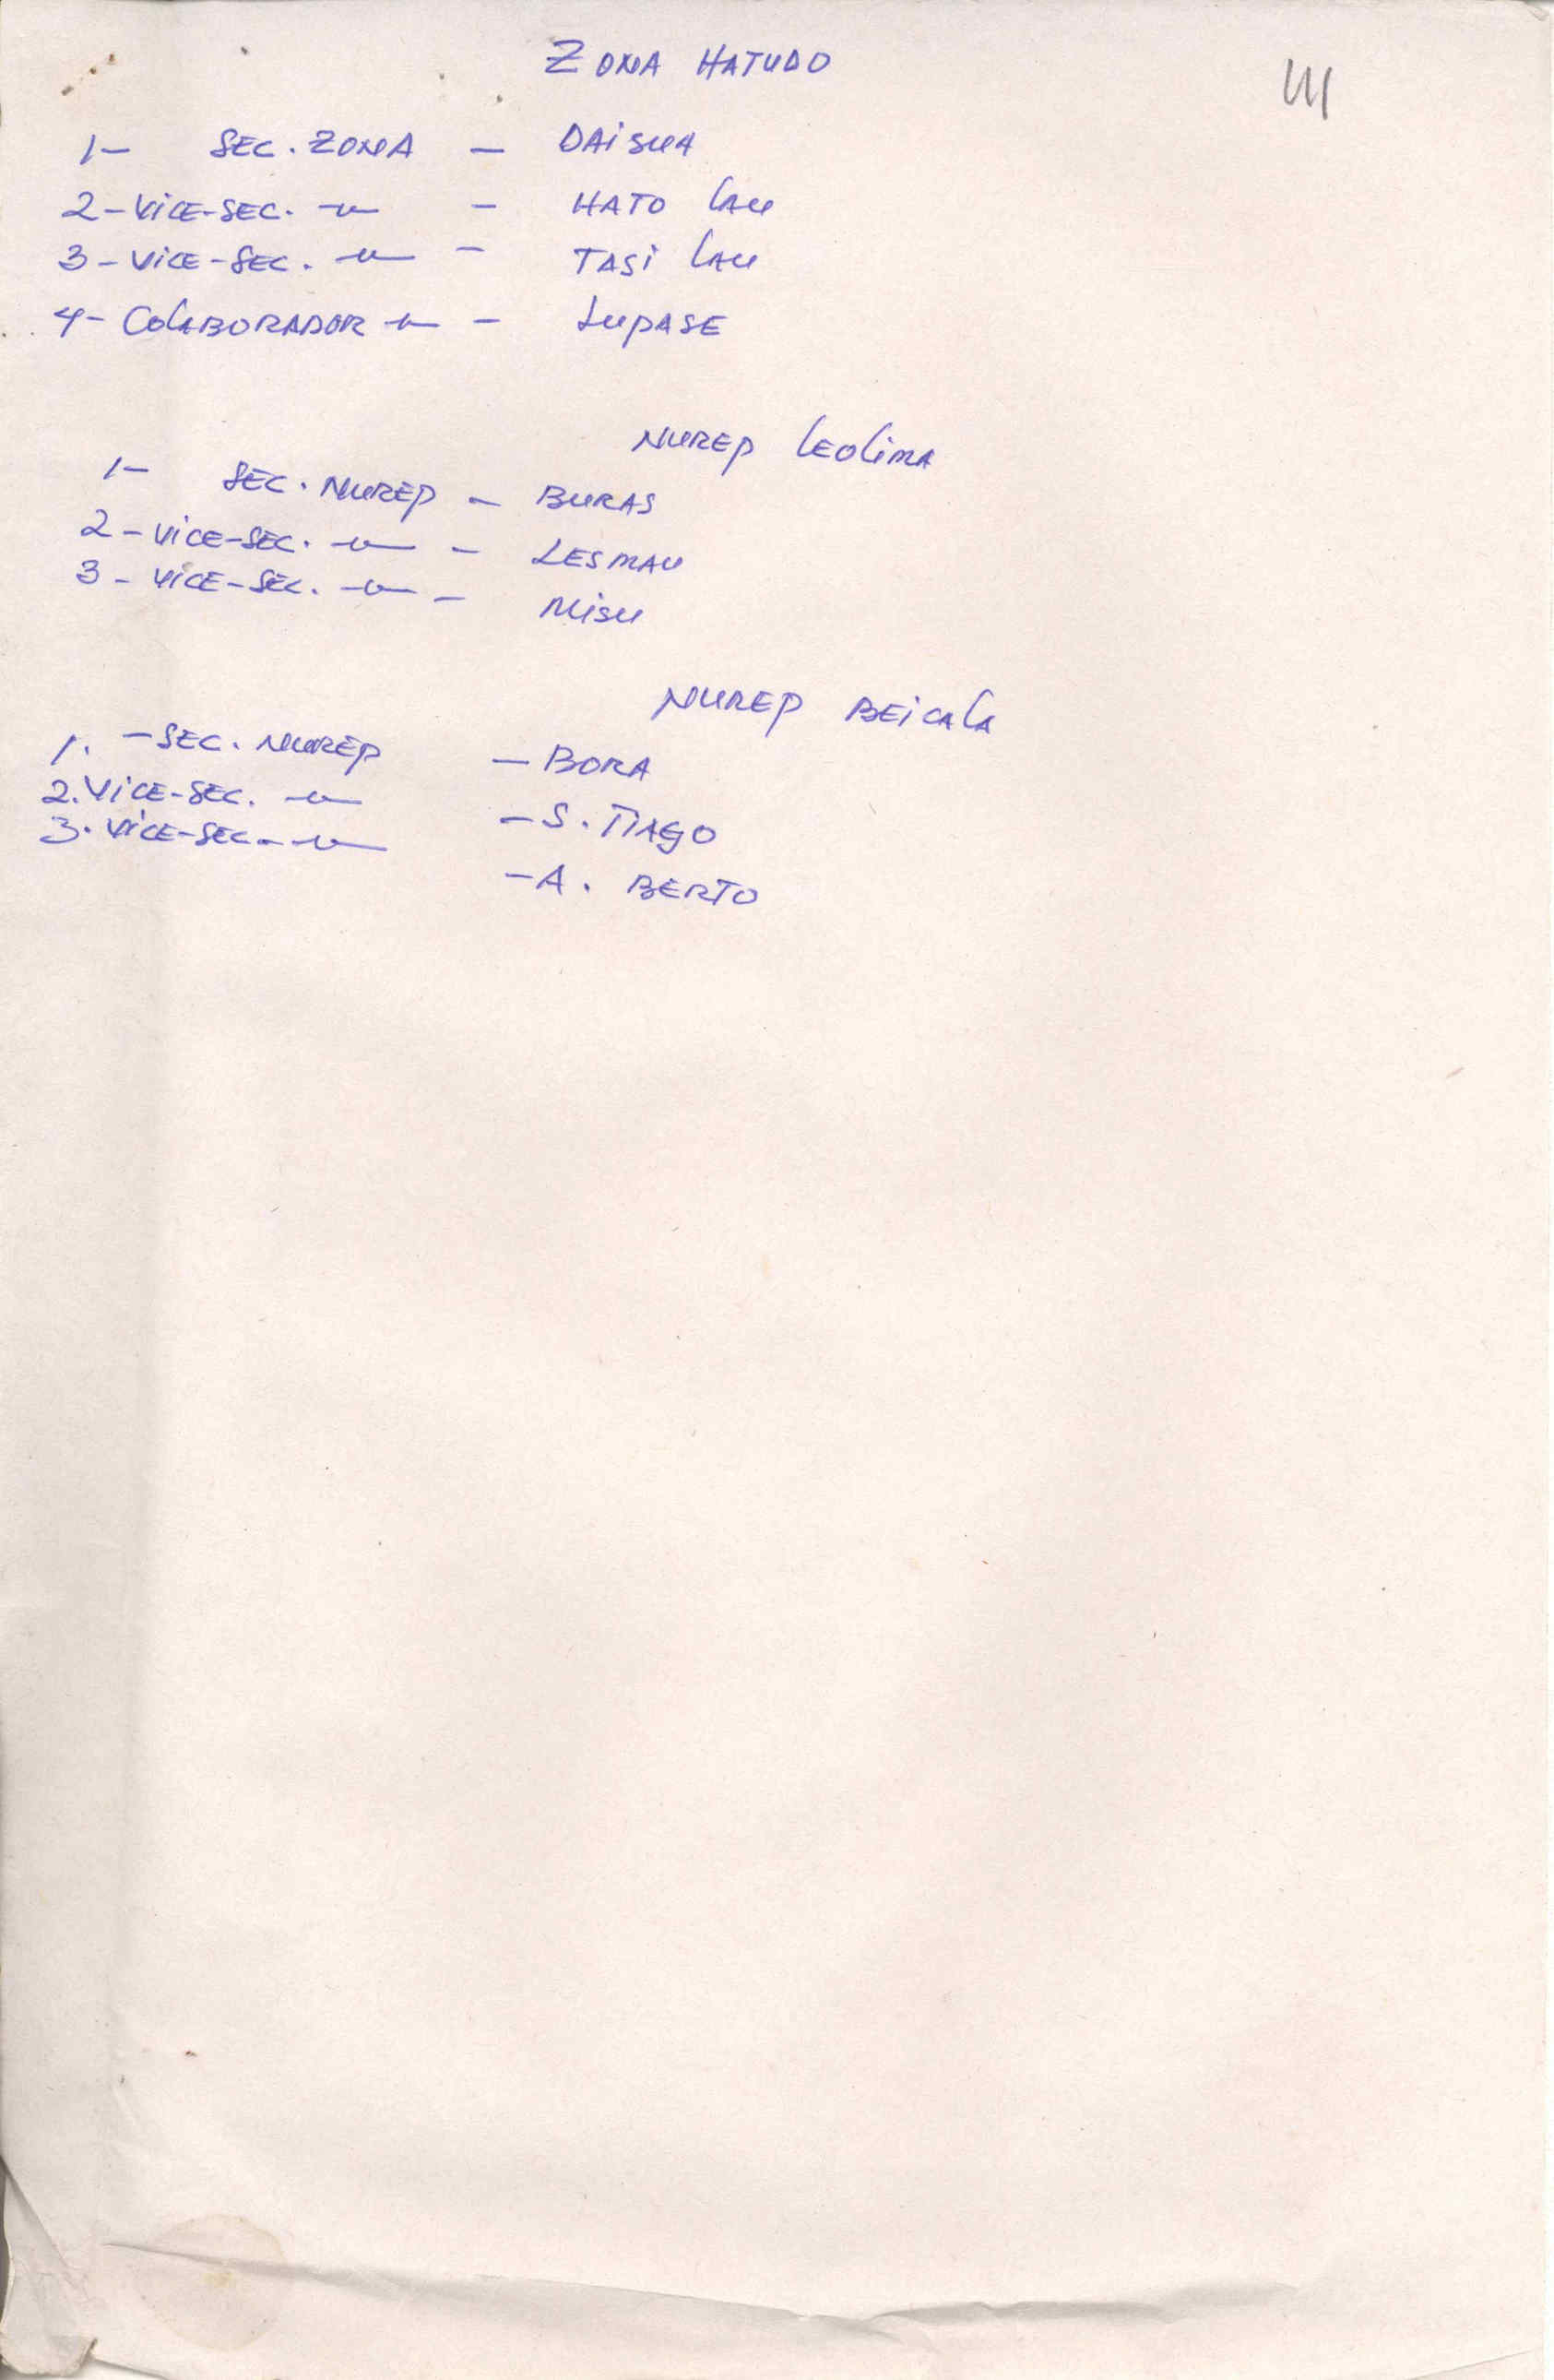 ZONA HATUDO
III
1- SEC. ZONA - DAISUA
2-VICE-SEC. -"- - HATO LAU
3-VICE-SEC. -"- - TASI LAU
4- COLABORADOR -"- - LUPASE
NUREP LEOLIMA
1- SEC. NUREP - BURAS
2-VICE-SEC. -"- - LESMAU
3-VICE-SEC. -"- - MISU
NUREP BEICALA
1. -SEC. NUREP - BORA
2. VICE-SEC. -"- - S. TIAGO
3. VICE-SEC. -"- - A. BERTO